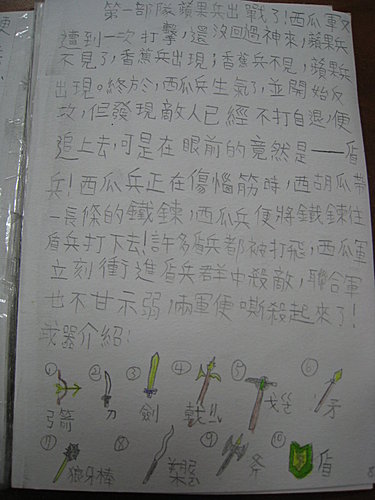 第一部隊蘋果兵出戰了!西瓜軍又
遭到一次打擊,還沒回過神來,蘋果兵
不見了,香蕉兵出現;香蕉兵不見,蘋果兵
出現。終於,西瓜兵生氣了,並開始反
攻,但發現敵人已經不打自退,便
追上去,可是在眼前的竟然是——盾
兵!西瓜兵正在傷惱筋時,西胡瓜帶
一長條的鐵鍊,西瓜兵便將鐵鍊往
盾兵打下去!許多盾兵都被打飛,西瓜軍
立刻衝進盾兵群中殺敵,聯合軍
也不甘示弱,兩軍便嘶殺起來了!
武器介紹:
① ② ③ ④ ⑤ ⑥
弓箭 刀 劍 戟ㄐㄧˇ 戈ㄍㄜ 矛
⑦ ⑧ ⑨ ⑩
狼牙棒 斧 盾